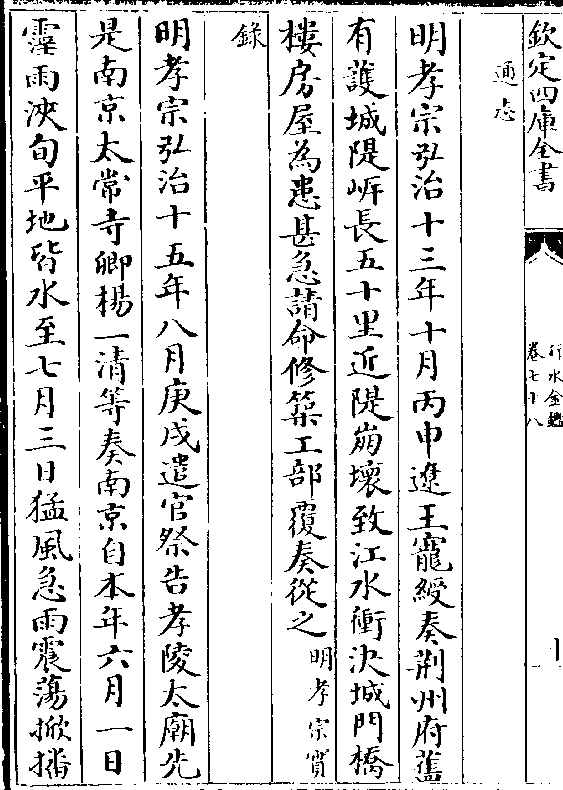 欽定四庫全書
行水金鑑
卷七十八
一
通志
明孝宗弘治十三年十月丙申遼王寵綬奏荆州府舊
有護城隄岍長五十里近隄崩壞致江水衝決城門橋
樓房屋為患甚急請命修築工部覆奏從之明孝宗實
錄
明孝宗弘治十五年八月庚戌遣官祭告孝陵太廟先
是南京太常寺卿楊一清等奏南京自本年六月一日
霪雨浹旬平地皆水至七月三日猛風急雨震蕩掀播